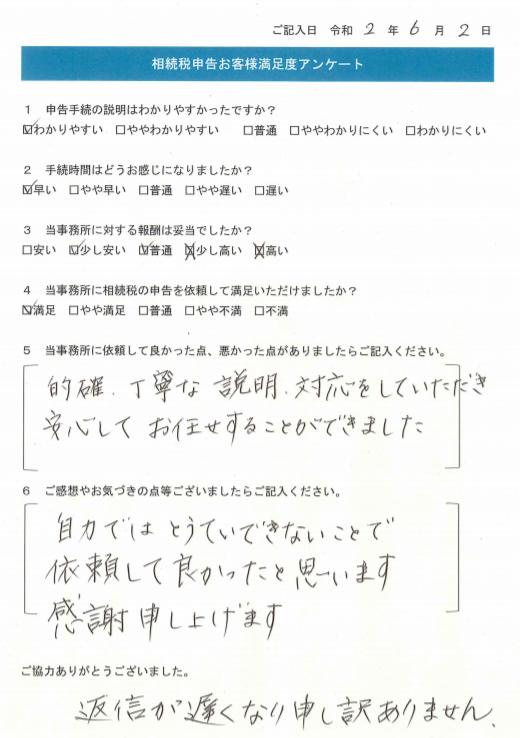 ご記入日 令和 2 年 6 月 2 日
相続税申告お客様満足度アンケート
1 申告手続の説明はわかりやすかったですか?
☑わかりやすい □ややわかりやすい □普通 □ややわかりにくい □わかりにくい
2 手続時間はどうお感じになりましたか?
☑早い □やや早い □普通 □やや遅い □遅い
3 当事務所に対する報酬は妥当でしたか?
□安い ☑少し安い ☑普通 ☒少し高い ☒高い
4 当事務所に相続税の申告を依頼して満足いただけましたか?
☑満足 □やや満足 □普通 □やや不満 □不満
5 当事務所に依頼して良かった点、悪かった点がありましたらご記入ください。
的確、丁寧な説明、対応をしていただき
安心して お任せすることができました
6 ご感想やお気づきの点等ございましたらご記入ください。
自力では とうていできないことで
依頼して良かったと思います
感謝申し上げます
ご協力ありがとうございました。
返信が遅くなり申し訳ありません、